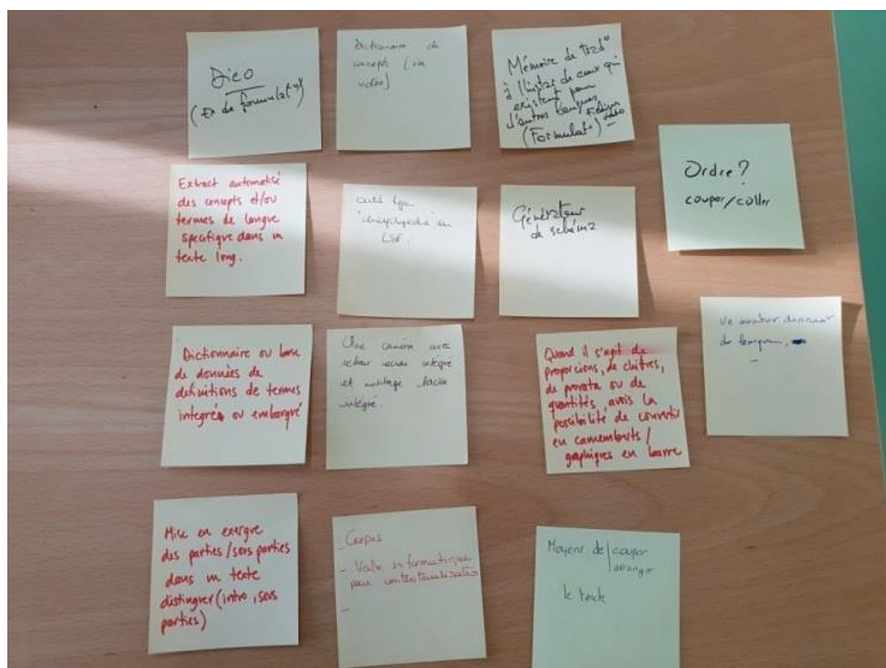 Dico
(Ex de formulat°)
Dictionnaire de
concepts (via
vidéo)
Mémoire de trad°
à l'instar de ceux qui
existent pour
d'autres langues
(Formulat°) Fichiers vidéo
Ordre ?
couper/coller
Extract automatisé
des concepts et/ou
termes de langue
spécifique dans un
texte long.
outil type
"encyclopédie" en
LSF.
Générateur
de schéma
Un avatar
de langue,
Dictionnaire ou base
de données de
définitions de termes
intégré ou embarqué
Une caméra avec
retour écran intégré
et montage facile
intégré.
Quand il s'agit de
proportions, de chiffres,
de prorata ou de
quantités, avoir la
possibilité de convertir
en camemberts/
graphiques en barre
Mise en exergue
des parties/sous parties
dans un texte
distinguer (intro, sous
parties)
- Corpus
- Veille informatique
pour contextualisation
-
Moyens de couper
arranger
le texte